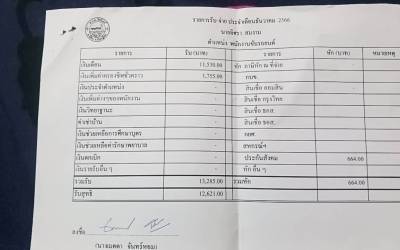 รายการรับ-จ่าย ประจำเดือนธันวาคม 2566
นายจิตรา สมงาม
ตำแหน่ง พนักงานขับรถยนต์
รายการ รับ (บาท) รายการ หัก (บาท) หมายเหตุ
เงินเดือน 11,530.00 หัก ภาษีหัก ณ ที่จ่าย
เงินเพิ่มค่าครองชีพชั่วคราว 1,755.00 กบข. -
เงินประจำตำแหน่ง - สินเชื่อ ออมสิน -
เงินเพิ่มต่างๆของพนักงาน - สินเชื่อ กรุงไทย -
เงินวิทยฐานะ - สินเชื่อ ธอส. -
ค่าเช่าบ้าน - สินเชื่อ ธกส. -
เงินช่วยเหลือการศึกษาบุตร - กยศ. -
เงินช่วยเหลือค่ารักษาพยาบาล - สหกรณ์ฯ -
เงินตกเบิก - ประกันสังคม 664.00
เงินรายรับอื่น ๆ - หัก อื่น ๆ
รวมรับ 13,285.00 รวมหัก 664.00
รับสุทธิ 12,621.00
ลงชื่อ